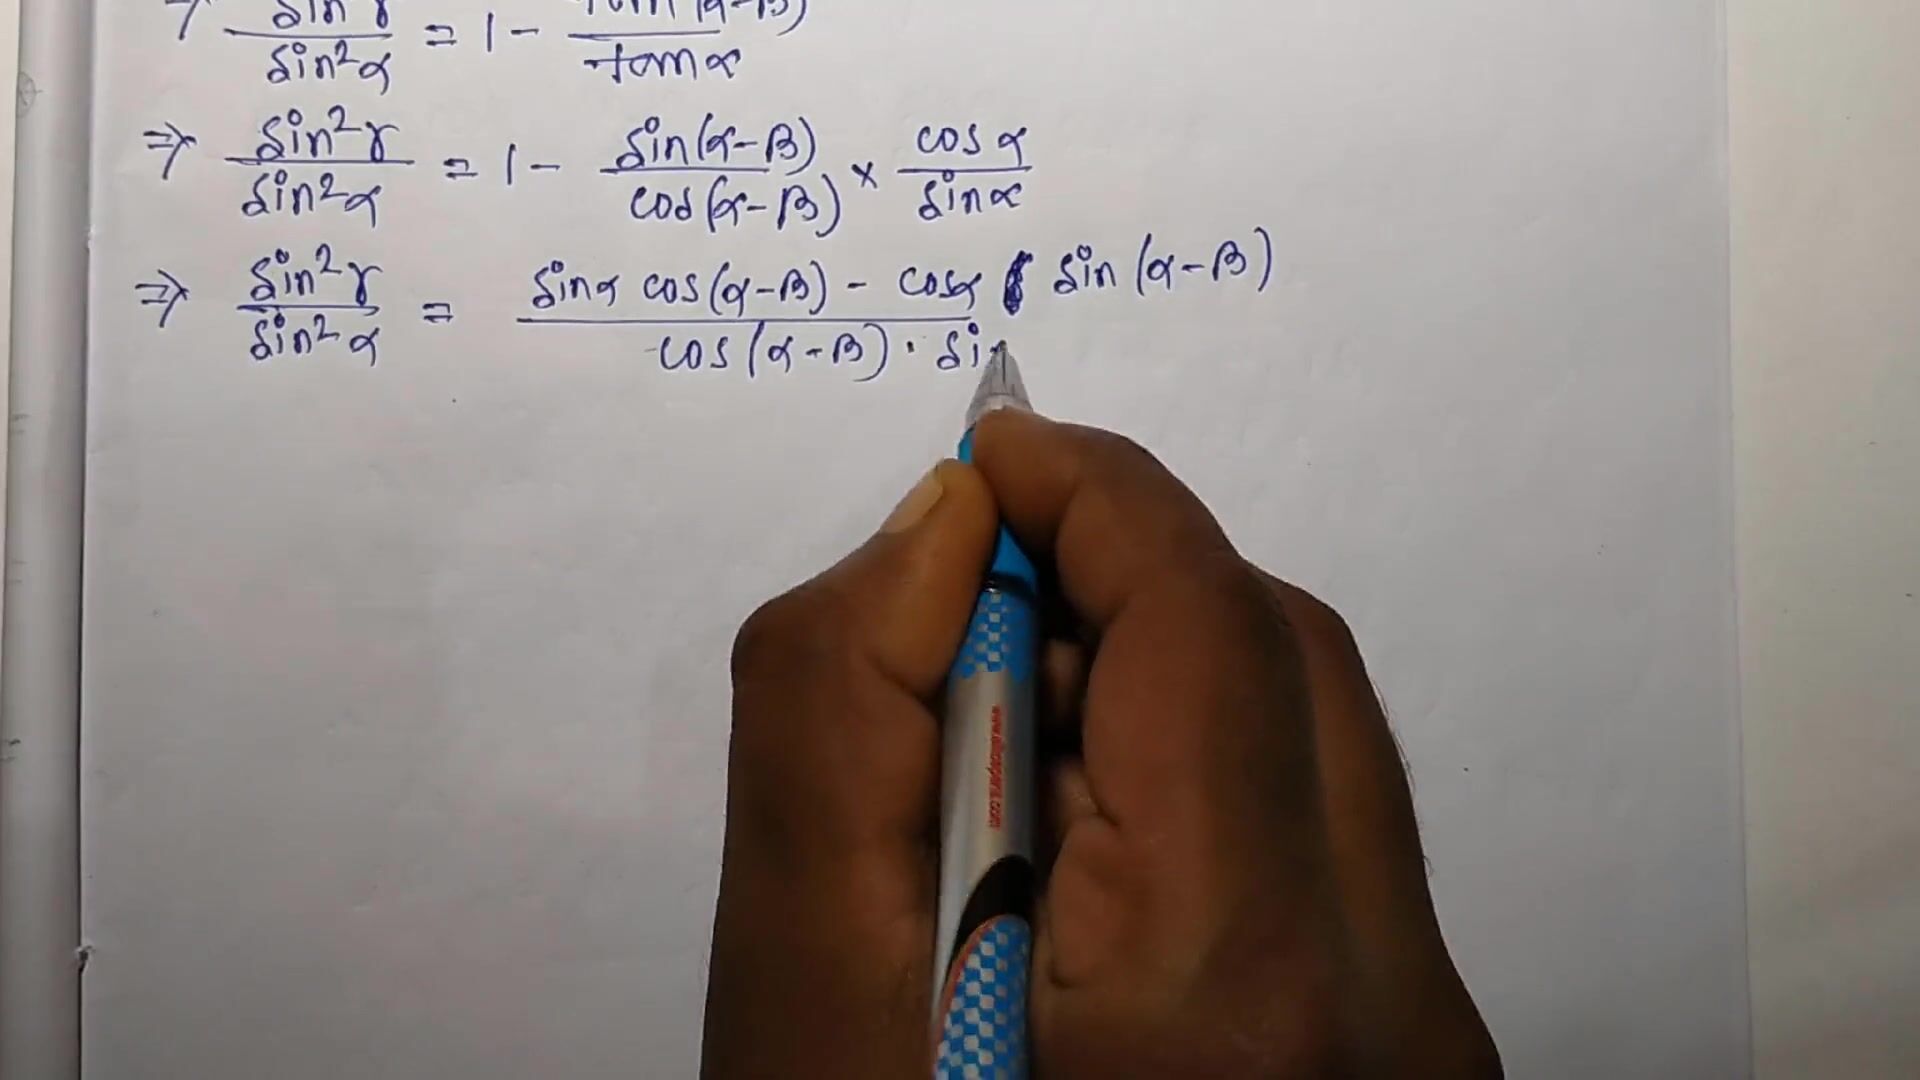 ⇒ sin²γ / sin²α = 1 - tan(α-β) / tanα
⇒ sin²γ / sin²α = 1 - sin(α-β) / cos(α-β) × cosα / sinα
⇒ sin²γ / sin²α = sinα cos(α-β) - cosα sin(α-β) / cos(α-β) · sin